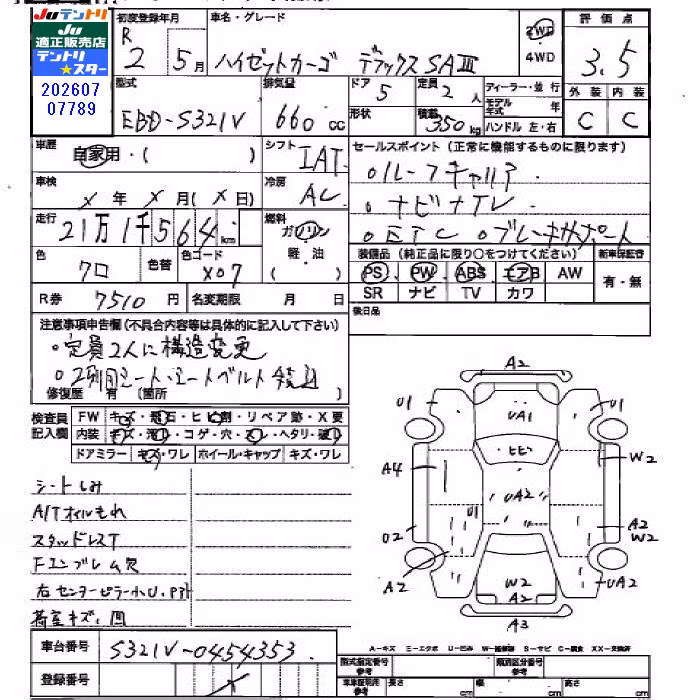 Juテントリ
Ju
適正販売店
テントリ
★スター
202607
07789
初度登録年月
R
2 5月
車名・グレード
ハイゼットカーゴ デラックスSAⅢ
2WD
4WD
評価点
3.5
外装 内装
C C
型式
EBD-S321V
排気量
660cc
ドア
5
形状
定員
2人
積載
350kg
ディーラー・並行
モデル年式 年
ハンドル 左・右
車歴
自家用・( )
シフト
IAT
車検
X年X月(X日)
冷房
AC
走行
21万1千564km
燃料
ガソリン
軽・油
( )
色
クロ
色替
色コード
X07
R券 7510円
名変期限 月 日
セールスポイント (正常に機能するものに限ります)
ルーフキャリア
ナビナTV
ETC ブレーキサポート
装備品 (純正品に限り○をつけてください)
新車保証書
PS PW ABS エアB AW
SR ナビ TV カワ
有・無
後日品
注意事項申告欄(不具合内容等は具体的に記入して下さい)
定員2人に構造変更
2列目シート・シートベルト
修復歴 有 (箇所 )
検査員
記入欄
FW キズ・飛石・ヒビ割・リペア跡・X更
内装
コゲ・穴・ヘタリ
ドアミラー キズ・ワレ ホイール・キャップ キズ・ワレ
シートしみ
A/Tオイルもれ
スタッドレスT
Fエンブレム欠
右センターピラー小U
荷室キズ・凹
A2
U1
U1
UA1
ヒビ
A4
W2
U1
UA2
U2
A2
W2
A2
W2
A2
UA2
A3
車台番号 S321V-0454353
登録番号
A-キズ E-エクボ U-凹み W-補修跡 S-サビ C-腐食 XX-交換済
型式指定番号
参考
類別区分番号
参考
車車証利用
参考
長さ cm 幅 cm 高さ cm